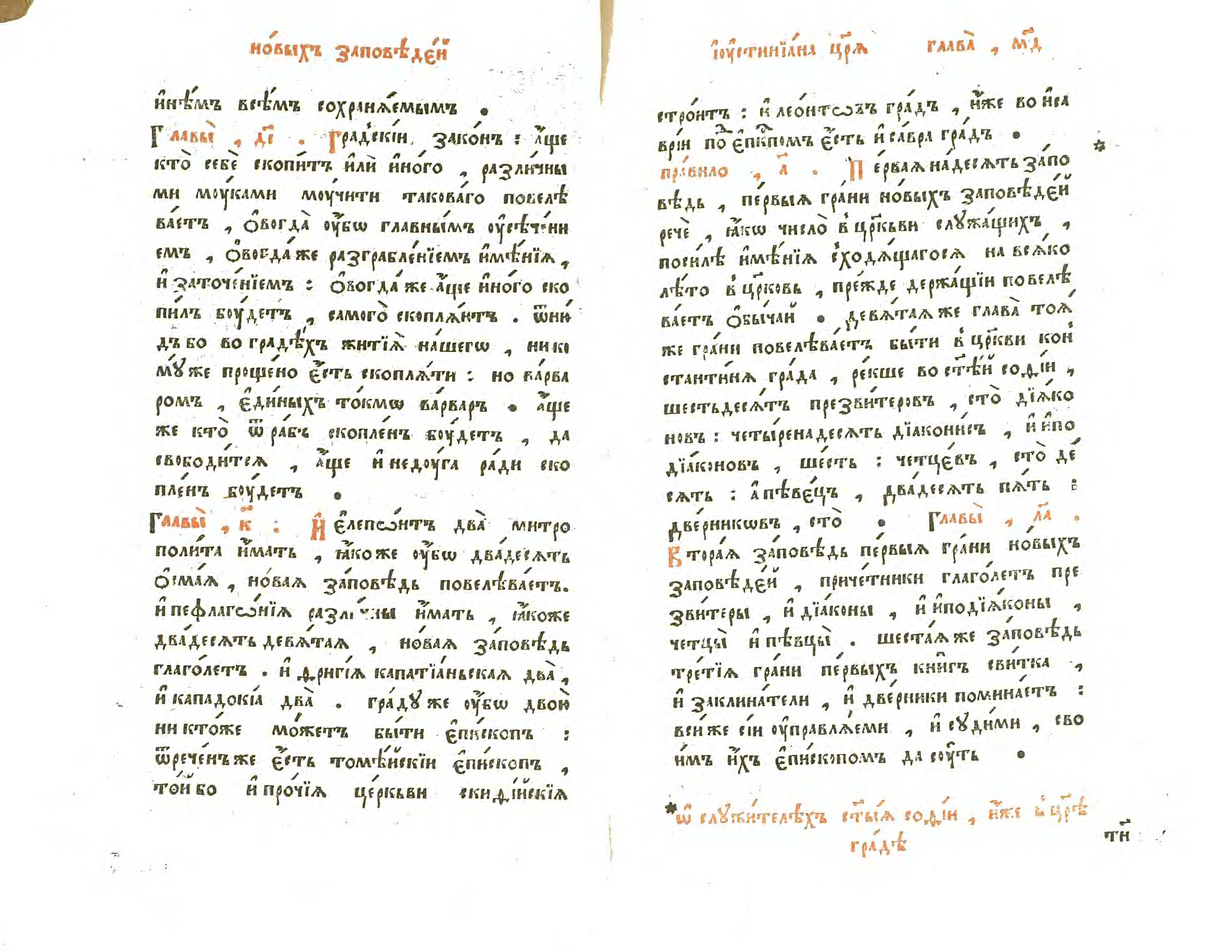 но́выхъ заповѣде́й
и҆нѣ́мъ всѣ́мъ сохраня́емымъ .
Главы̀ , д҃і . Гра́дскїи, зако́нъ : а҆́ще
кто̀ себѐ скопи́тъ и҆лѝ и҆но́го , разли́чны
ми мꙋ́ками мꙋ́чити такова́го повелѣ
ва́етъ , ѻ҆вогда̀ оу҆́бѡ гла́внымъ оу҆сѣче́ни
емъ , ѻ҆вогда́же разграбле́нїемъ и҆мѣ́нїѧ ,
и҆ заточе́нїемъ : ѻ҆вогда́ же а҆́ще и҆но́го ско
пи́лъ бꙋ́детъ , самого̀ скоплѧ́ютъ . ѿню
дъ бо во гра́дѣхъ житїѧ̀ на́шегѡ , ни ко
мꙋ́же проще́но є҆́сть скоплѧ́ти : но ва́рва
ромъ , є҆ди́ныхъ то́кмѡ ва́рваръ . а҆́ще
же кто̀ ѿ ра́бъ скопле́нъ бꙋ́детъ , да
свободи́тсѧ , а҆́ще и҆ недꙋ́га ра́ди ско
пле́нъ бꙋ́детъ .
Главы̀ , к҃ : И҆ є҆лепсо́нтъ два̀ митро
поли́та и҆́мать , ꙗ҆́коже оу҆́бѡ два́десѧть
ѻ҆сма́ѧ , но́ваѧ за́повѣдь повелѣва́етъ.
и҆ пефлаго́нїѧ и҆́мать , ꙗ҆́коже
два́десѧть девѧ́таѧ , но́ваѧ за́повѣдь
глаго́летъ . и҆ фриги́ѧ капатїа́ньскаѧ два̀ ,
и҆ кападокі́а два̀ . гра́дꙋ же оу҆́бѡ двою̀
ни кто́же мо́жетъ бы́ти є҆пи́скопъ :
ѿрече́нъ же є҆́сть томѣ́йскїи є҆пи́скопъ ,
то́й бо и҆ про́чїѧ це́ркьви скиѳі́йскїѧ
і҆ꙋстинїа́на цр҃ѧ глава̀ , м҃д
стро́итъ : и҆ лео́нтѡвъ гра́дъ , и҆́же во и҆са
врі́и по є҆пкпомъ є҆́сть и҆ са́вра гра́дъ .
пра́вило , а҃ . Пе́рваѧ на́десѧть за́по
вѣдь , пе́рвыѧ гра́ни но́выхъ за́повѣде́й
речѐ , ꙗ҆́кѡ число̀ в цр҃кьви слꙋжа́щихъ ,
поси́лѣ и҆мѣ́нїѧ сходѧ́щагосѧ на всѧ́ко
лѣ́то в цр҃ковь , пре́жде держа́щїи повелѣ
ва́етъ ѻ҆бы́чай . девѧ́таѧ же глава̀ тоѧ́
же гра́ни повелѣва́етъ бы́ти в цр҃кви кон
стантинѧ гра́да , ре́кше во ст҃ѣ́й софі́и ,
шестьдесѧ́тъ презви́теровъ , сто̀ дїѧ́ко
новъ : четы́ренадесѧть дїако́нисъ , и҆ и҆по
дїа́коновъ , ше́сть : четце́въ , сто̀ де́
сѧть : а пѣве́цъ , два́десѧть пѧ́ть :
две́рникѡвъ , сто̀ . Главы̀ , л҃а .
Втора́ѧ за́повѣдь пе́рвыѧ гра́ни но́выхъ
заповѣде́й , приче́тники глаго́летъ пре
зви́теры , и҆ дїа́коны , и҆ и҆подїѧ́коны ,
четцы̀ и҆ пѣвцы̀ . шеста́ѧ же за́повѣдь
тре́тїѧ гра́ни пе́рвыхъ кни́гъ сви́тка ,
и҆ заклина́тели , и҆ две́рники помина́етъ :
вси́ же сі́и оу҆правлѧ́еми , и҆ сꙋди́ми , сво
и́мъ и҆́хъ є҆пи́скопомъ да сꙋ́ть .
* ѡ҆ слꙋжи́телехъ ст҃ы́ѧ софі́и , и҆́же в цр҃ѣ
гра́дѣ
ти҃